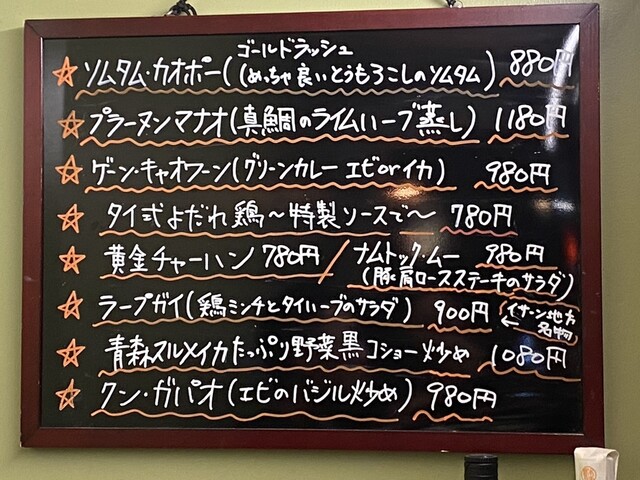 ゴールドラッシュ
☆ ソムタム・カオポー((めっちゃ良いとうもろこしのソムタム) 880円
☆ プラーヌンマナオ(真鯛のライムハーブ蒸し) 1180円
☆ ゲーン・キャオワーン(グリーンカレー エビorイカ) 980円
☆ タイ式よだれ鶏〜特製ソースで〜 780円
☆ 黄金チャーハン 780円 / ナムトック・ムー 980円
(豚肩ロースステーキのサラダ)
☆ ラープガイ(鶏ミンチとタイハーブのサラダ) 900円 ← イサーン地方
名物
☆ 青森スルメイカたっぷり野菜黒コショー炒め 1080円
☆ クン・ガパオ(エビのバジル炒め) 980円